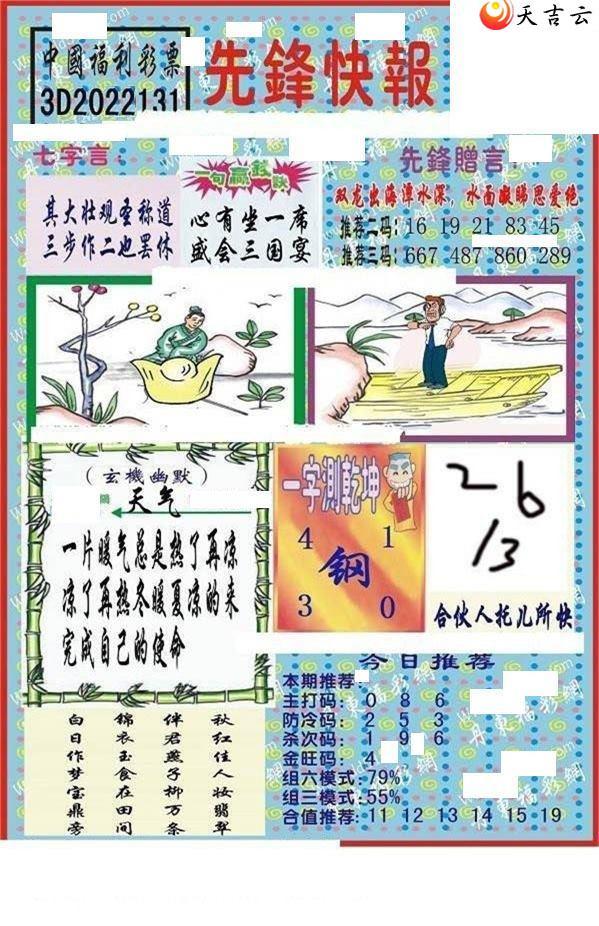 天吉云
中國福利彩票
3D2022131
先鋒快報
七字言：
其大壮观圣称道
三步作二也罢休
一句赢钱诀
心有坐一席
盛会三国宴
先鋒贈言：
双龙出海潭水深，水面凝睇思爱绝
推荐二码：16 19 21 83 45
推荐三码：667 487 860 289
（玄機幽默）
天气
一片暖气总是热了再凉
凉了再热冬暖夏凉的来
完成自己的使命
一字測乾坤
4 1
鋼
3 0
26
13
合伙人托儿所快
今日推荐
本期推荐：
主打码：0 8 6
防冷码：2 5 3
杀次码：1 9 6
金旺码：4
组六模式：79%
组三模式：55%
合值推荐：11 12 13 14 15 19
白日作梦宝鼎旁
锦衣玉食在田间
伴君燕子柳万条
秋红佳人妆翡翠
丹東福彩網